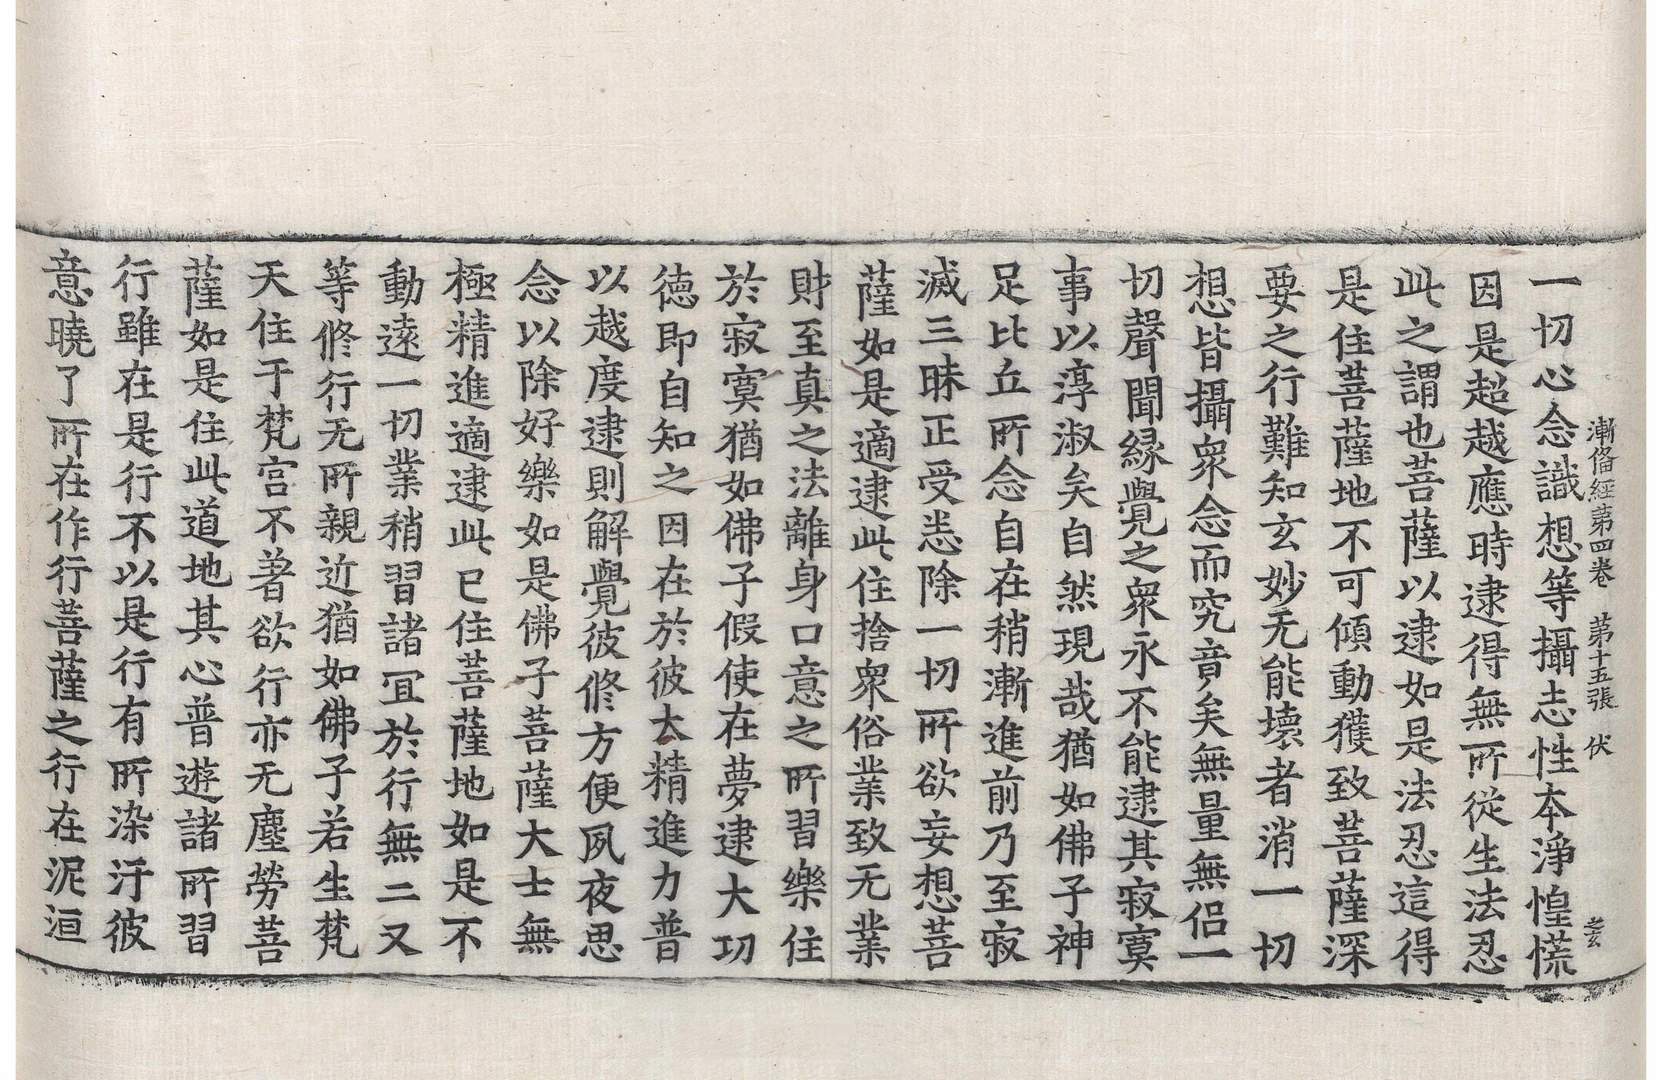 漸俻經第四卷　第十五張　伏
一切心念識想等攝志性本淨惶慌
因是超越應時逮得無所從生法忍
此之謂也菩薩以逮如是法忍這得
是住菩薩地不可傾動獲致菩薩深
要之行難知玄妙无能壞者消一切
想皆攝衆念而究音矣無量無侣一
切聲聞緣覺之衆永不能逮其寂寞
事以淳淑矣自然現哉猶如佛子神
足比丘所念自在稍漸進前乃至寂
滅三昧正受悉除一切所欲妄想菩
薩如是適逮此住捨衆俗業致无業
財至真之法離身口意之所習樂住
於寂寞猶如佛子假使在夢逮大功
德即自知之因在於彼大精進力普
以越度逮則解覺彼修方便夙夜思
念以除好樂如是佛子菩薩大士無
極精進適逮此已住菩薩地如是不
動遠一切業稍習諸冝於行無二又
等修行无所親近猶如佛子若生梵
天住于梵宫不著欲行亦无塵勞菩
薩如是住此道地其心普遊諸所習
行雖在是行不以是行有所染汙彼
意曉了所在作行菩薩之行在泥洹